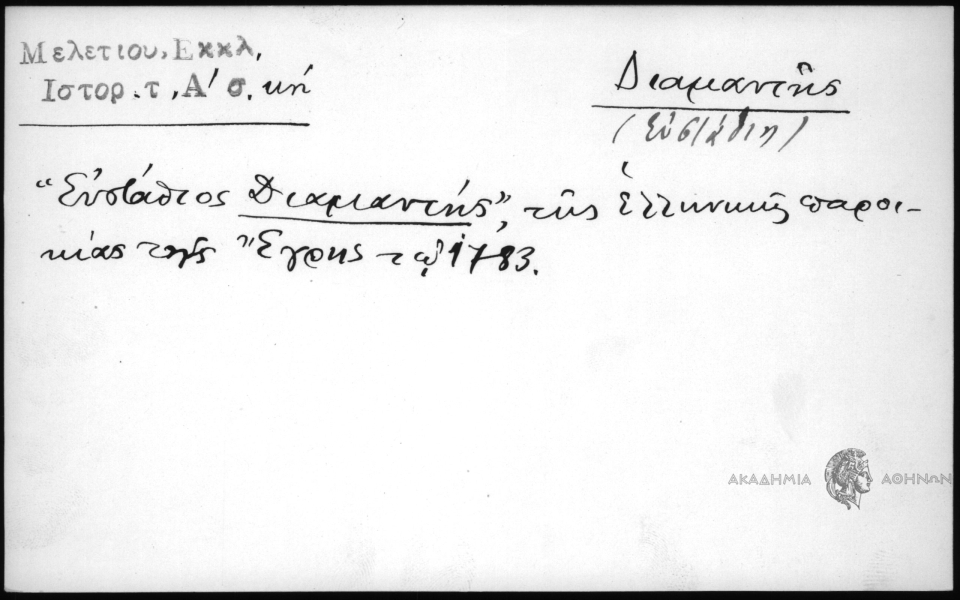 Μελετιου, Εκκλ,
Ιστορ. τ, Α' σ. κή
Διαμαντῆς
(Εὐστάθιη)
"Εὐστάθιος Διαμαντής", τῆς ἑλληνικῆς παροι-
κίας τῆς Ἔγρης τῷ 1783.
ΑΚΑΔΗΜΙΑ ΑΘΗΝΩΝ